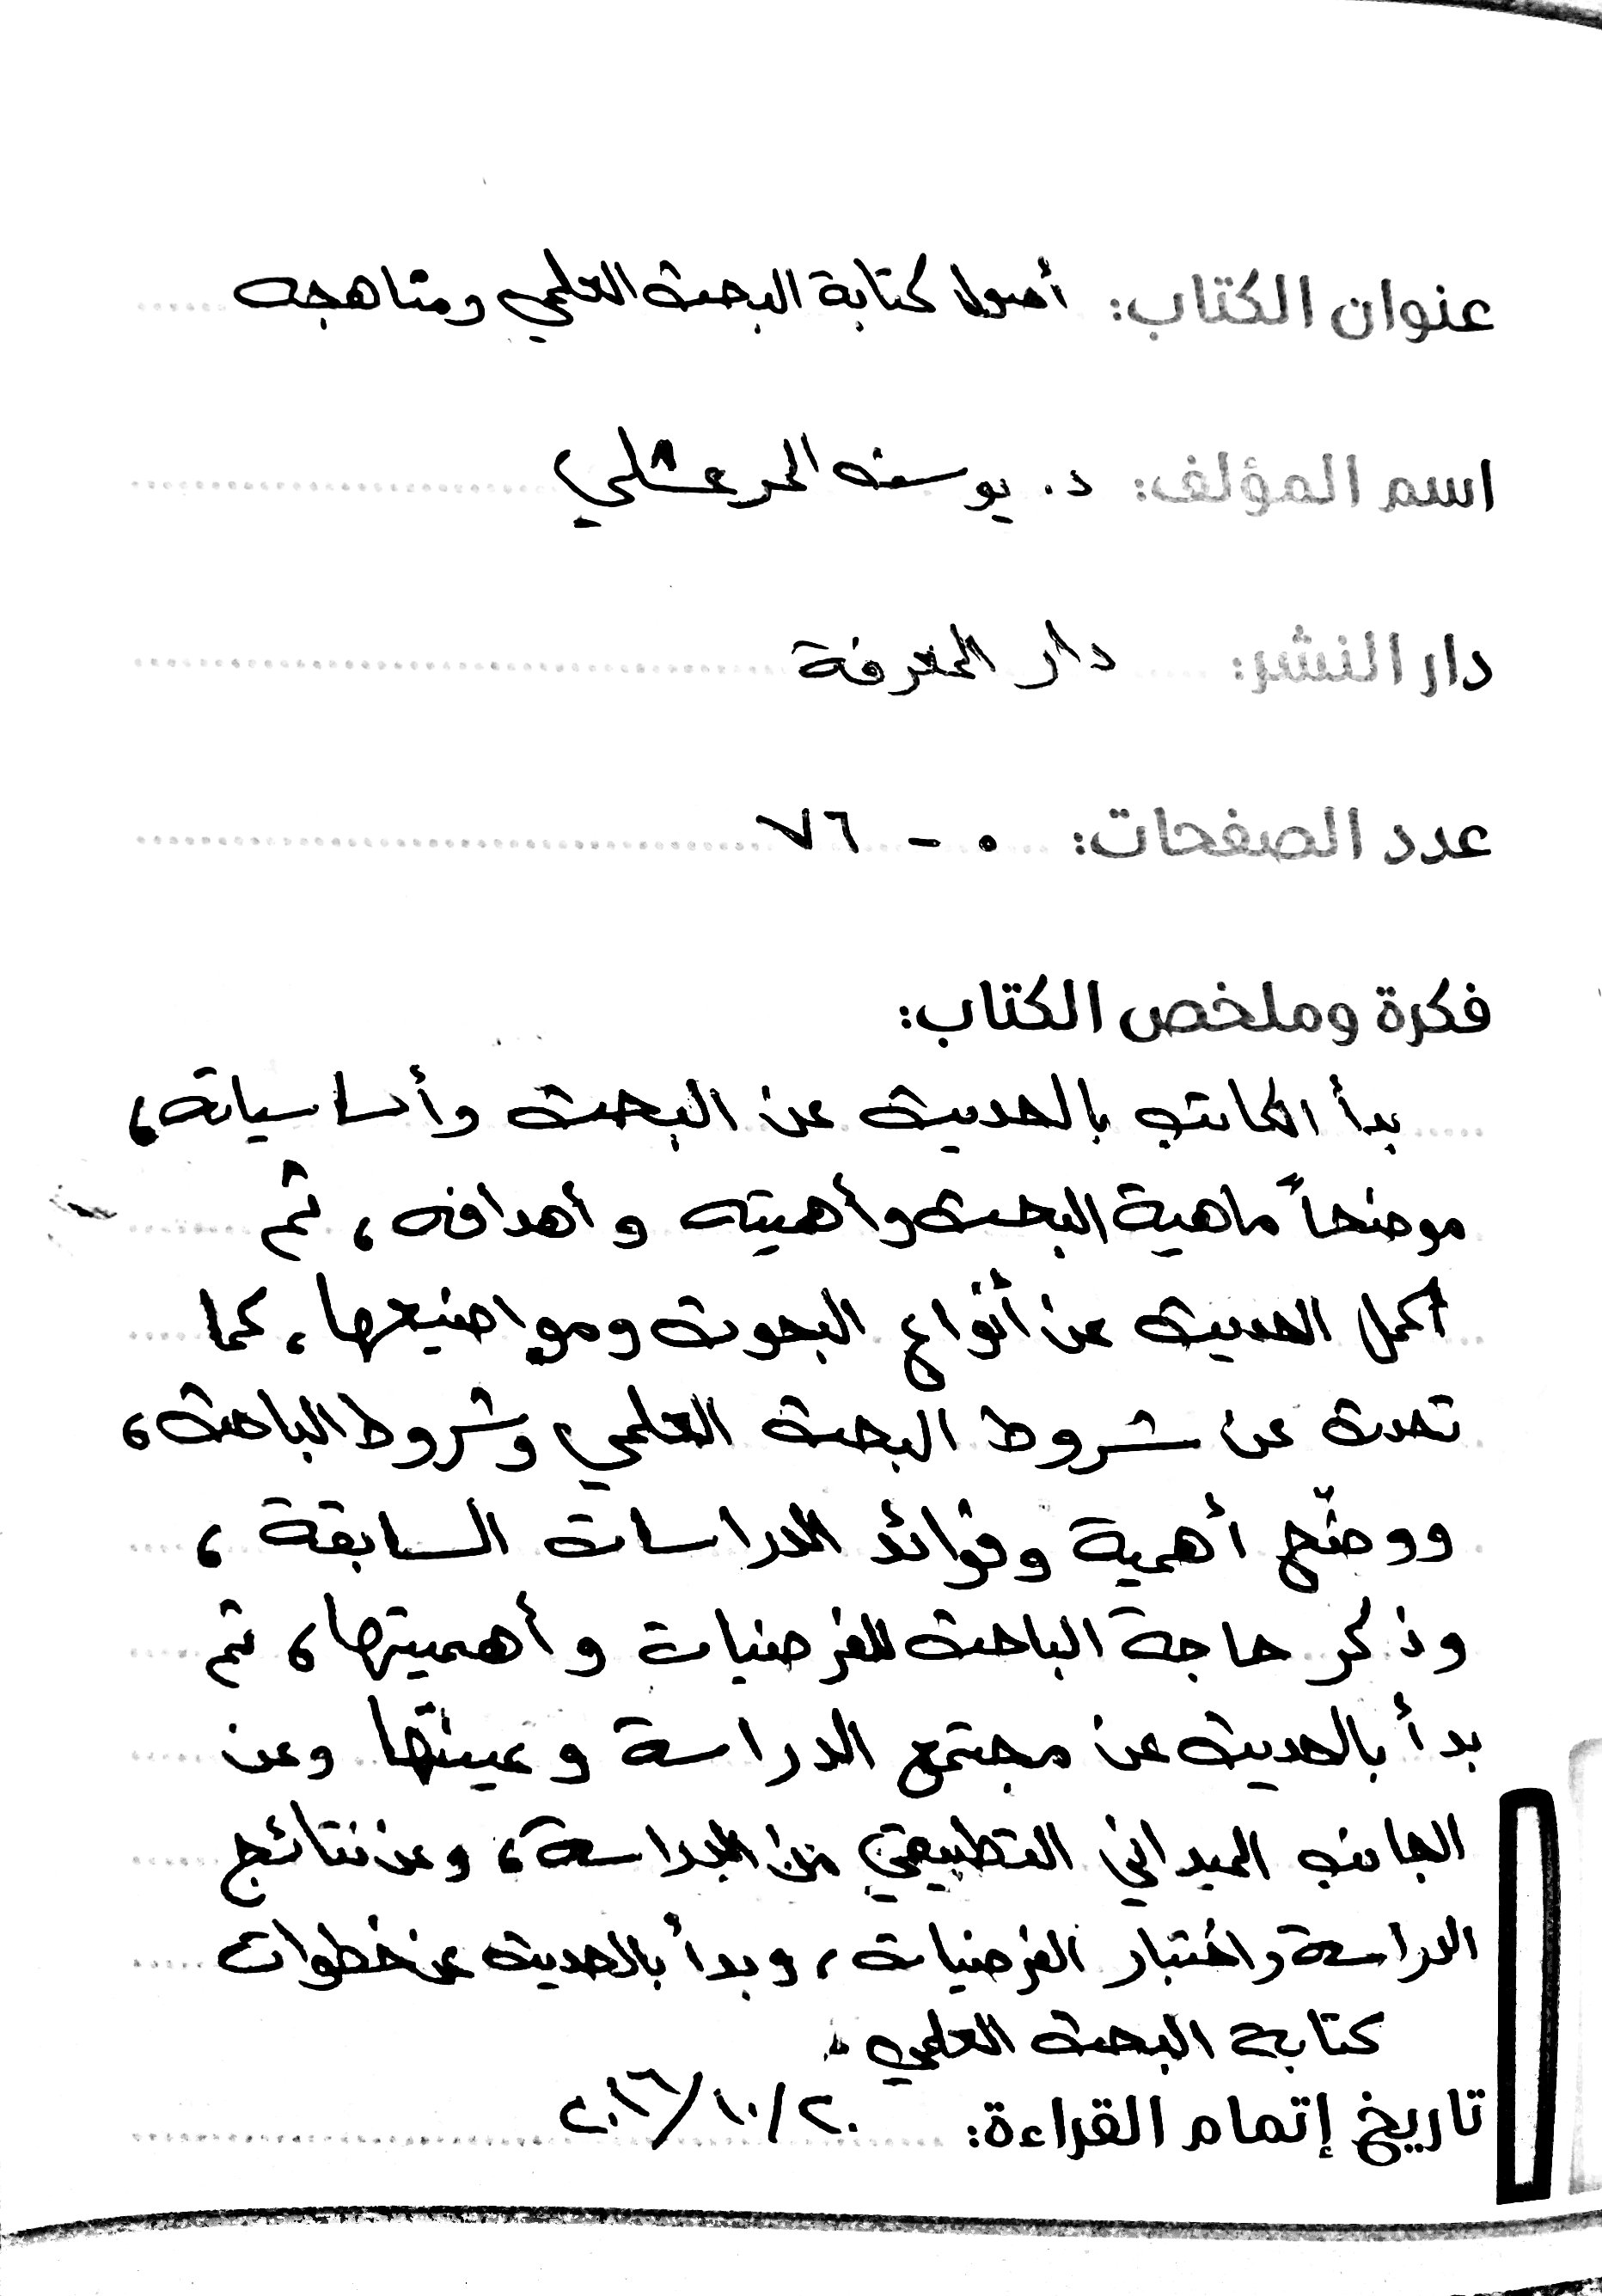 عنوان الكتاب: أصول كتابة البحث العلمي ومناهجه
اسم المؤلف: د. يوسف المرعشلي
دار النشر: دار المعرفة
عدد الصفحات: ٠ - ٧٦
فكرة وملخص الكتاب:
بدأ الكاتب بالحديث عن البحث وأساسياته،
موضحاً ماهية البحث وأهميته وأهدافه، ثم
أكمل الحديث عن أنواع البحوث ومواضيعها، كما
تحدث عن شروط البحث العلمي وشروط الباحث،
ووضّح أهمية وفوائد الدراسات السابقة،
وذكر حاجة الباحث للفرضيات وأهميتها، ثم
بدأ بالحديث عن مجتمع الدراسة وعينتها وعن
الجانب الميداني التطبيقي من الدراسة، وعن نتائج
الدراسة واختبار الفرضيات، وبدأ بالحديث عن خطوات
كتابة البحث العلمي.
تاريخ إتمام القراءة: ٢٠/١٠/٢٠١٦